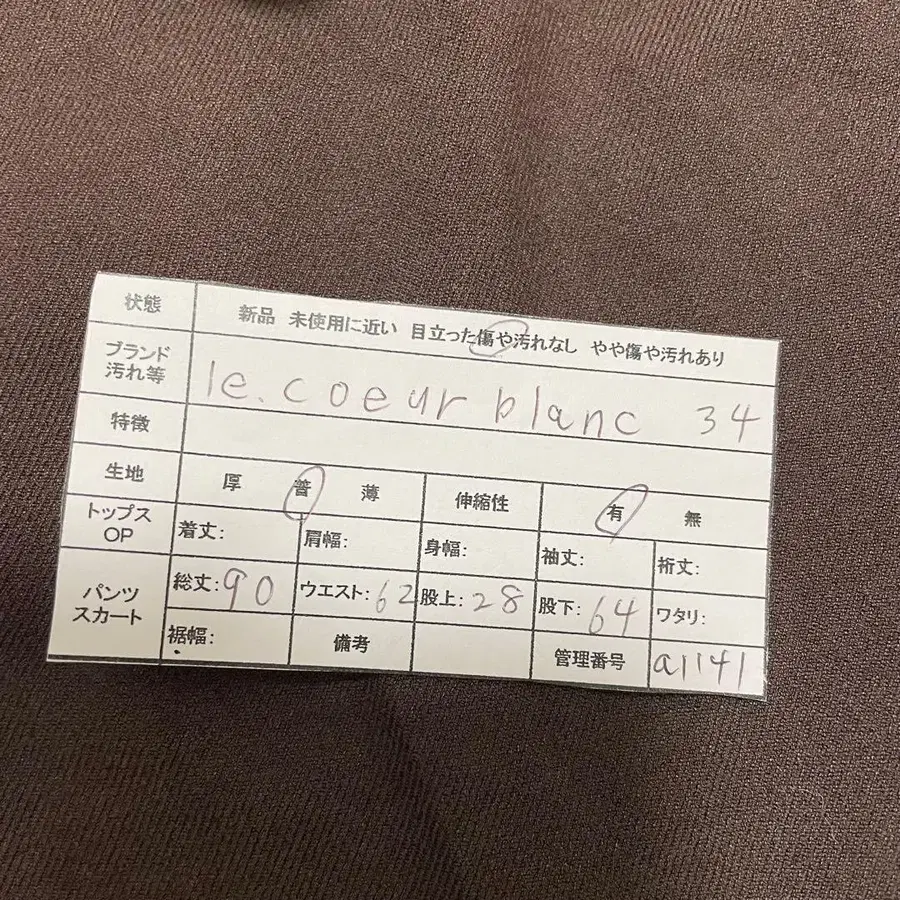 状態 新品 未使用に近い 目立った傷や汚れなし やや傷や汚れあり
ブランド 汚れ等 le.coeur blanc 34
特徴
生地 厚 普 薄 伸縮性 有 無
トップス OP 着丈: 肩幅: 身幅: 袖丈: 裄丈:
パンツ スカート 総丈:90 ウエスト:62 股上:28 股下:64 ワタリ:
裾幅: 備考 管理番号 a1141